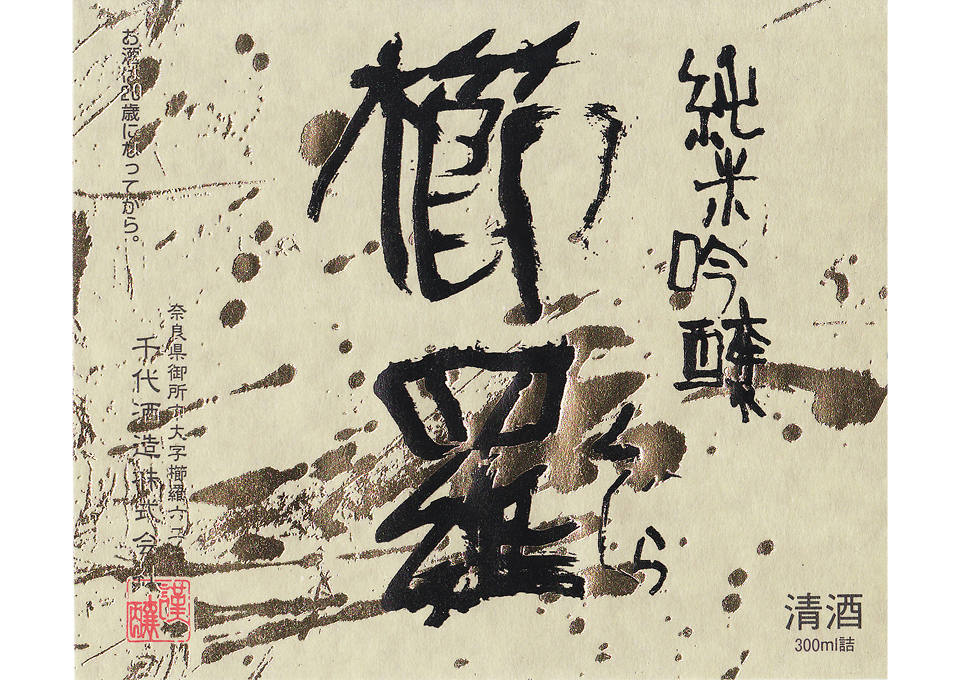 純米吟醸
櫛羅
くじら
お酒は20歳になってから。
奈良県御所市大字櫛羅六二一
千代酒造株式会社
謹醸
清酒
300ml詰